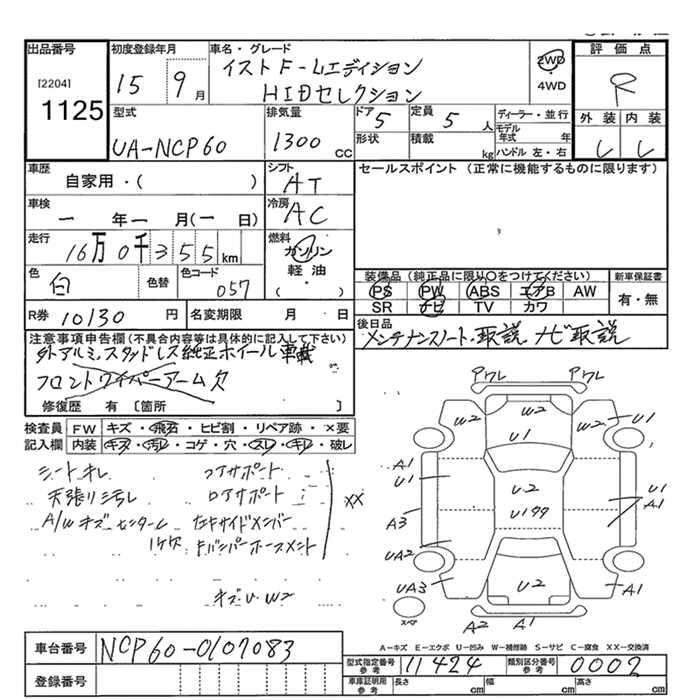 出品番号
[2204]
1125
初度登録年月
15 9月
車名・グレード
イスト F-Lエディション
HIDセレクション
2WD
・
4WD
評価点
R
外装 内装
型式
UA-NCP60
排気量
1300 cc
ドア
5
定員
5 人
形状
積載
kg
ディーラー・並行
モデル年式 年
ハンドル 左・右
車歴
自家用・( )
シフト
AT
セールスポイント (正常に機能するものに限ります)
車検
一 年 一 月(一 日)
冷房
AC
走行
16万0千355km
燃料
ガソリン
軽油
( )
色
白
色替
色コード
057
装備品(純正品に限り○をつけてください)
PS PW ABS エアB AW
SR ナビ TV カワ
新車保証書
有・無
R券 10130 円
名変期限 月 日
後日品
メンテナンスノート・取説 ナビ取説
注意事項申告欄(不具合内容等は具体的に記入して下さい)
外アルミ、スタッドレス純正ホイール車載
フロントワイパーアーム欠
修復歴 有〔箇所 〕
検査員記入欄
FW キズ・飛石・ヒビ割・リペア跡・×要
内装 キズ・汚レ・コゲ・穴・スレ・キレ・破レ
シートキレ コアサポート
天張リ汚レ ロアサポート
A/Wキズ センターL 左Fサイドメンバー XX
1ケ欠 Fバンパーホースメント
キズU W2
アワレ アワレ
W2 W2 W2 U1
U1
A1 U1
U2
U1 A1
A3 U199
UA2
UA3 U2 A1
スペア
A2 A1
A-キズ E-エクボ U-凹み W-補修跡 S-サビ C-腐食 XX-交換済
車台番号 NCP60-0107083
型式指定番号 参考 11424
類別区分番号 参考 0002
登録番号
車庫証明用 参考 長さ cm 幅 cm 高さ cm